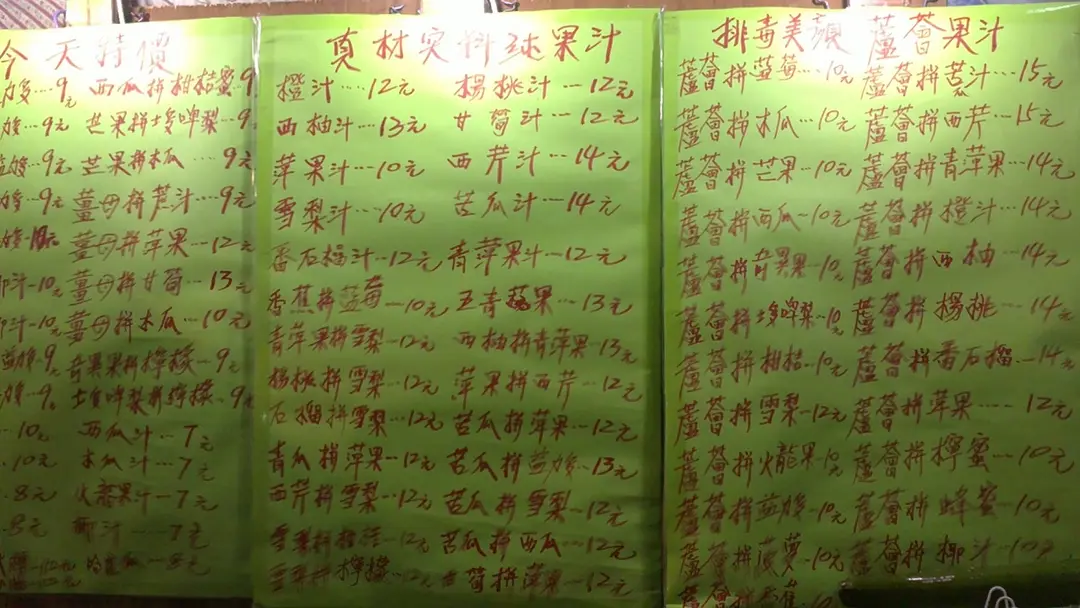 今天特價
西瓜拼柑桔蜜9
9元 芒果拼士多啤梨…9
9元 芒果拼木瓜…9元
9元 薑母拼蔗汁…9元
薑母拼苹果…12元
汁…10元 薑母拼甘筍…13元
汁…10元 薑母拼木瓜…10元
9元 奇異果拼檸檬…9元
9 士多啤梨拼檸檬…9
…10元 西瓜汁…7元
…10元 木瓜汁…7元
…8元 火龍果汁…7元
…8元 椰汁…7元
真材实料 果汁
橙汁…12元 楊桃汁…12元
西柚汁…13元 甘筍汁…12元
苹果汁…10元 西芹汁…14元
雪梨汁…10元 苦瓜汁…14元
番石榴汁…12元 青苹果汁…12元
香蕉拼蓝莓…10元 五青蔬果…13元
青苹果拼雪梨…12元 西柚拼青苹果…13元
楊桃拼雪梨…12元 苹果拼西芹…12元
石榴拼雪梨…12元 苦瓜拼苹果…12元
青瓜拼苹果…12元 苦瓜拼…13元
西芹拼雪梨…12元 苦瓜拼雪梨…12元
雪梨拼…12元 苦瓜拼西瓜…12元
雪梨拼檸檬…12元 甘筍拼苹果…12元
排毒美顏 蘆薈果汁
蘆薈拼蓝莓…10元 蘆薈拼 汁…15元
蘆薈拼木瓜…10元 蘆薈拼西芹…15元
蘆薈拼芒果…10元 蘆薈拼青苹果…14元
蘆薈拼西瓜…10元 蘆薈拼橙汁…14元
蘆薈拼奇異果…10元 蘆薈拼西柚…14元
蘆薈拼士多啤梨…10元 蘆薈拼楊桃…14元
蘆薈拼柑桔…10元 蘆薈拼番石榴…14元
蘆薈拼雪梨…12元 蘆薈拼苹果…12元
蘆薈拼火龍果…10元 蘆薈拼檸蜜…10元
蘆薈拼…10元 蘆薈拼蜂蜜…10元
蘆薈拼菠萝…10元 蘆薈拼椰汁…10元
蘆薈拼…10元